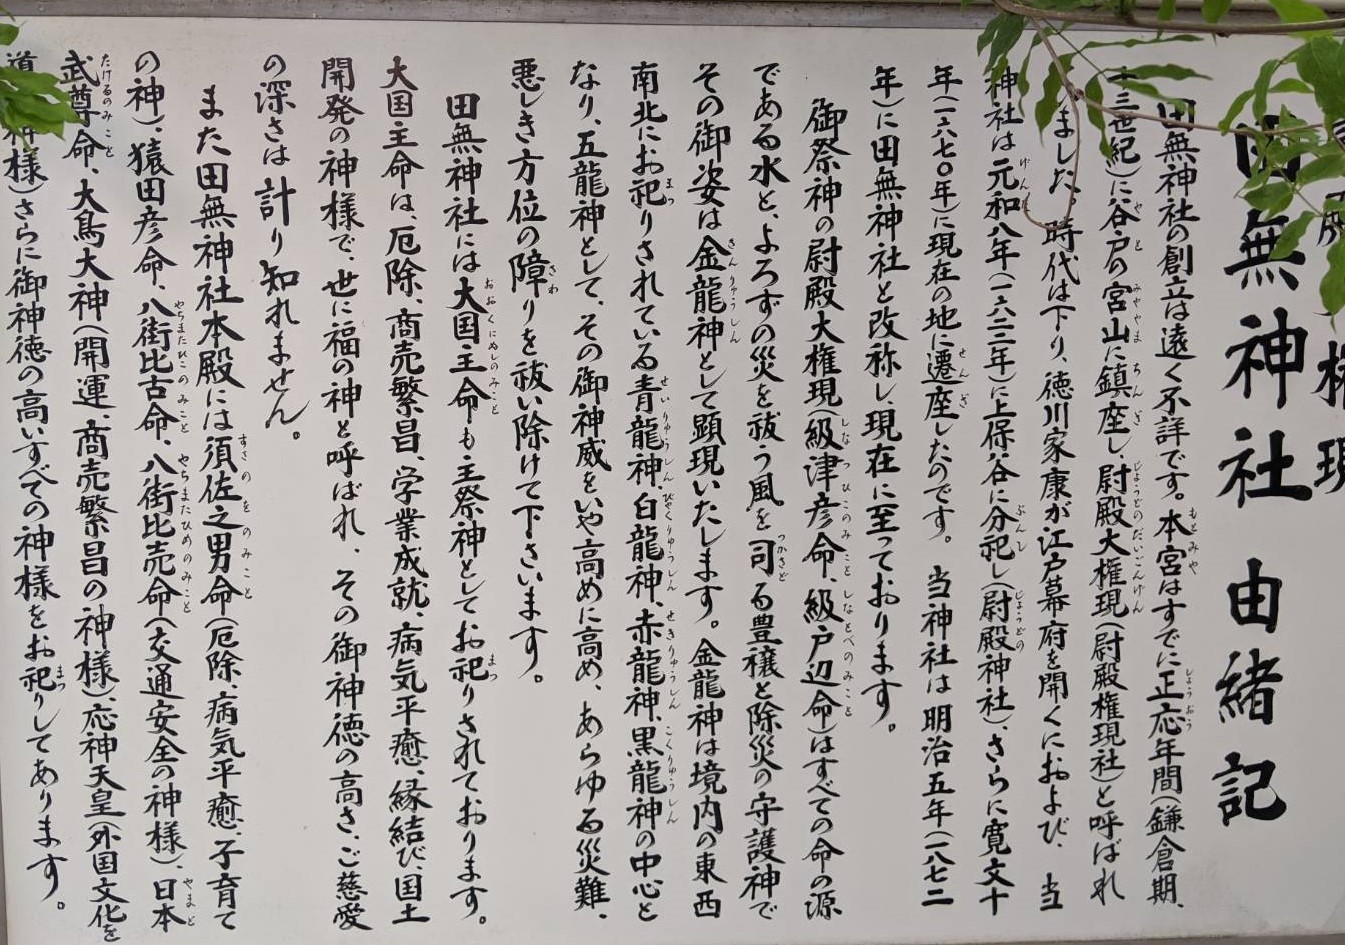 権現
田無神社 由緒記
田無神社の創立は遠く不詳です。本宮はすでに正応年間(鎌倉期、
三世紀)に谷戸の宮山に鎮座し、尉殿大権現(尉殿権現社)と呼ばれ
ました。時代は下り、徳川家康が江戸幕府を開くにおよび、当
神社は元和八年(一六二二年)に上保谷に分祀し(尉殿神社)、さらに寛文十
年(一六七〇年)に現在の地に遷座したのです。当神社は明治五年(一八七二
年)に田無神社と改称し現在に至っております。
御祭神の尉殿大権現(級津彦命、級戸辺命)はすべての命の源
である水と、よろずの災を祓う風を司る豊穣と除災の守護神で
その御姿は金龍神として顕現いたします。金龍神は境内の東西
南北にお祀りされている青龍神、白龍神、赤龍神、黒龍神の中心と
なり、五龍神として、その御神威をいや高めに高め、あらゆる災難、
悪しき方位の障りを祓い除けて下さいます。
田無神社には大国主命も主祭神としてお祀りされております。
大国主命は、厄除、商売繁昌、学業成就、病気平癒、縁結び、国土
開発の神様で、世に福の神と呼ばれ、その御神徳の高さ、ご慈愛
の深さは計り知れません。
また田無神社本殿には須佐之男命(厄除、病気平癒、子育て
の神)、猿田彦命、八街比古命、八街比売命(交通安全の神様)、日本
武尊命、大鳥大神(開運、商売繁昌の神様)、応神天皇(外国文化を
様)さらに御神徳の高いすべての神様をお祀りしてあります。